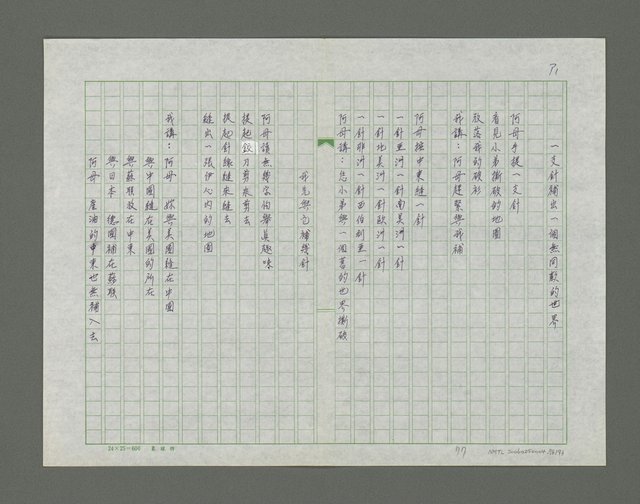 71
一支針補出一個無同款的世界
阿母手提一支針
看見小弟撕破的地圖
放落我的破衫
我講：阿母趕緊與我補
阿母捻中東縫一針
一針亞洲一針南美洲一針
一針北美洲一針歐洲一針
一針非洲一針西伯利亞一針
阿母講：恁小弟與一個舊的世界撕破
我先與它補幾針
阿母讀無冊
提起鉸刀剪來剪去
提起針線縫來縫去
縫出一張伊心內的地圖
我講：阿母 妳與美國縫在中國
與中國縫在美國的所在
與蘇聯放在中東
與日本 德國補在蘇聯
阿母 產油的中東也無補入去
24×25=600
77
NMTL